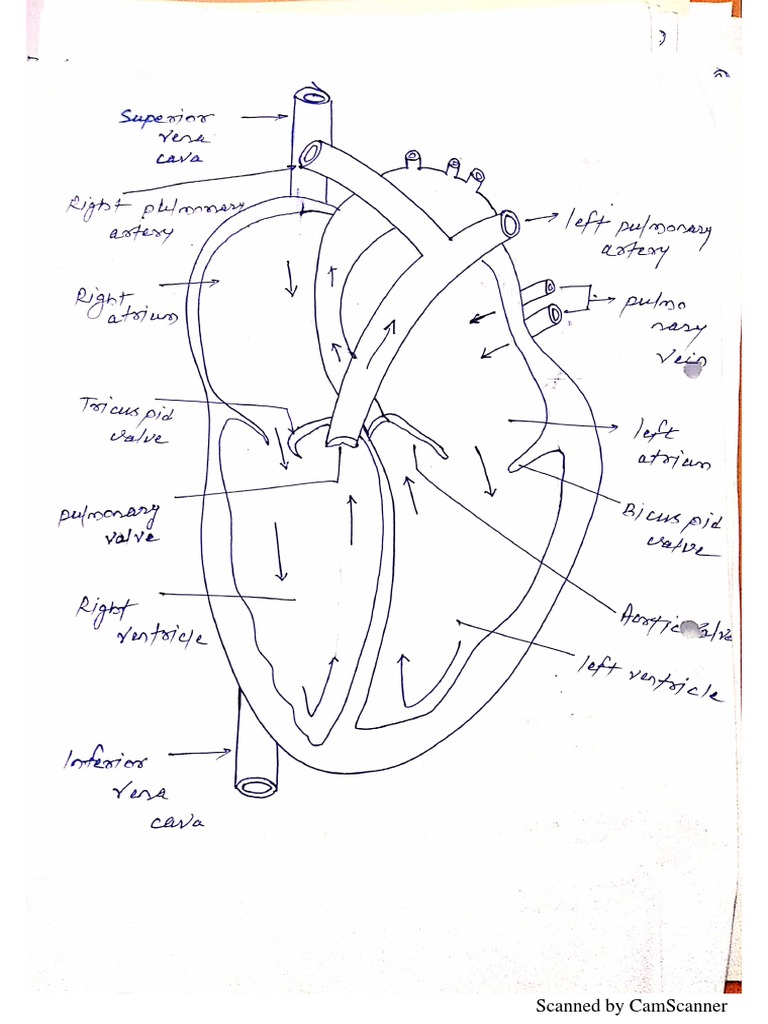 Superior
vena
cava
Right pulmonary
artery
left pulmonary
artery
Right
atrium
pulmo
nary
vein
Tricuspid
valve
left
atrium
pulmonary
valve
Bicuspid
valve
Right
ventricle
Aortic valve
left ventricle
Inferior
vena
cava
Scanned by CamScanner